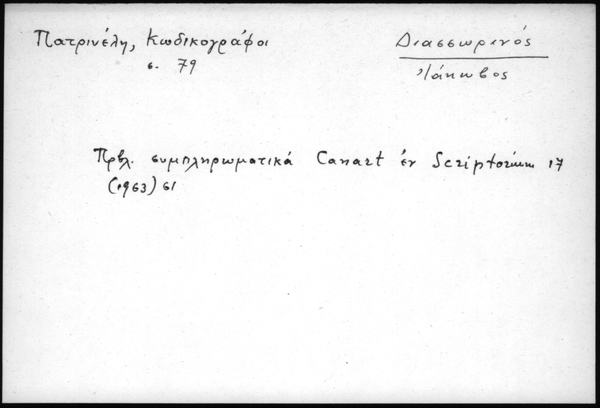 Πατρινέλη, Κωδικογράφοι
σ. 79
Διασσωρινός
Ἰάκωβος
Πρβλ. συμπληρωματικά Canart ἐν Scriptorium 17
(1963) 61